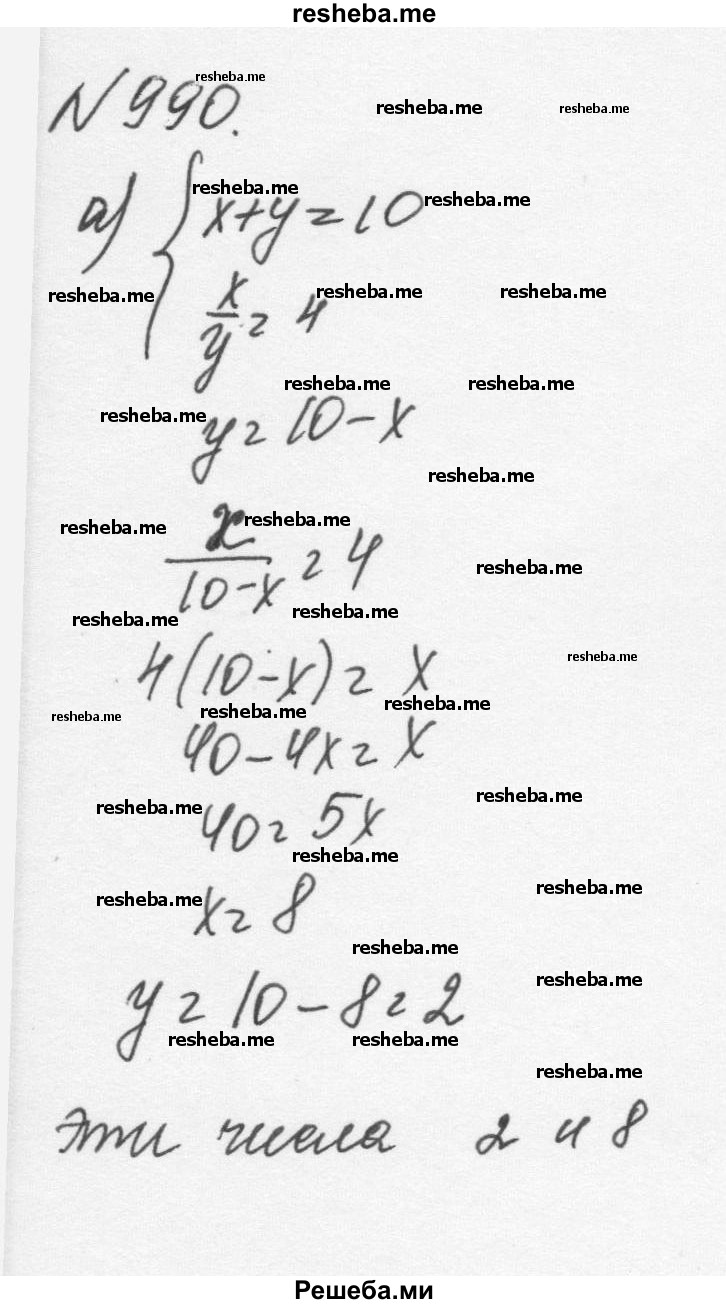 resheba.me
N 990.
а) { x+y=10
x/y = 4
y = 10 - x
x/(10-x) = 4
4(10-x) = x
40 - 4x = x
40 = 5x
x = 8
y = 10 - 8 = 2
Эти числа 2 и 8
Решеба.ми